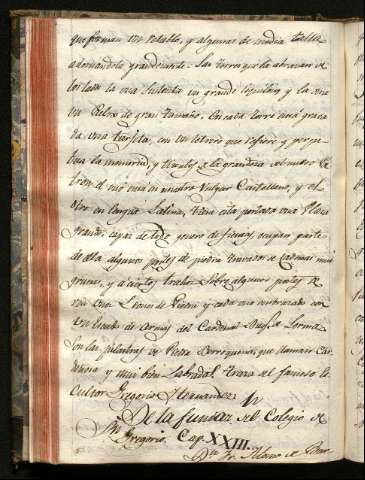 que forman un retablo, y algunas de media talla
adornandola, y grandeando. Las torres que la abrazan
los lados la una sustenta un grande y la otra
un de gran tamaño. En cada torre està graua
da una tarjeta, con un letrero que refiere y perpe
tua la memoria, y titulos, de la grandeza del nuestro Pa
tron el uno esta en nuestro vulgar Castellano, y el
otro en lengua Latina, tiene esta portada una Plaza
grande, cercada de todo genero de fieras, ocupan parte
de ella algunos postes de piedra trauados de cadenas mui
gruesas, y a ciertos trechos sobre algunos postes de
ellos unos Leones de Piedra y cada uno embrazado con
un Escudo de Armas del Cardenal Duque de Lerma
son las pilastras de Piedra Berroqueña, que llaman Car
deñosa y mui bien Labradas. Traza del famoso Es
cultor Gregorio Hernandez.
De la fundaz.n del Colegio de
Sn. Gregorio. Cap. XXIII.
Dn. Fr. Alonso de Bur